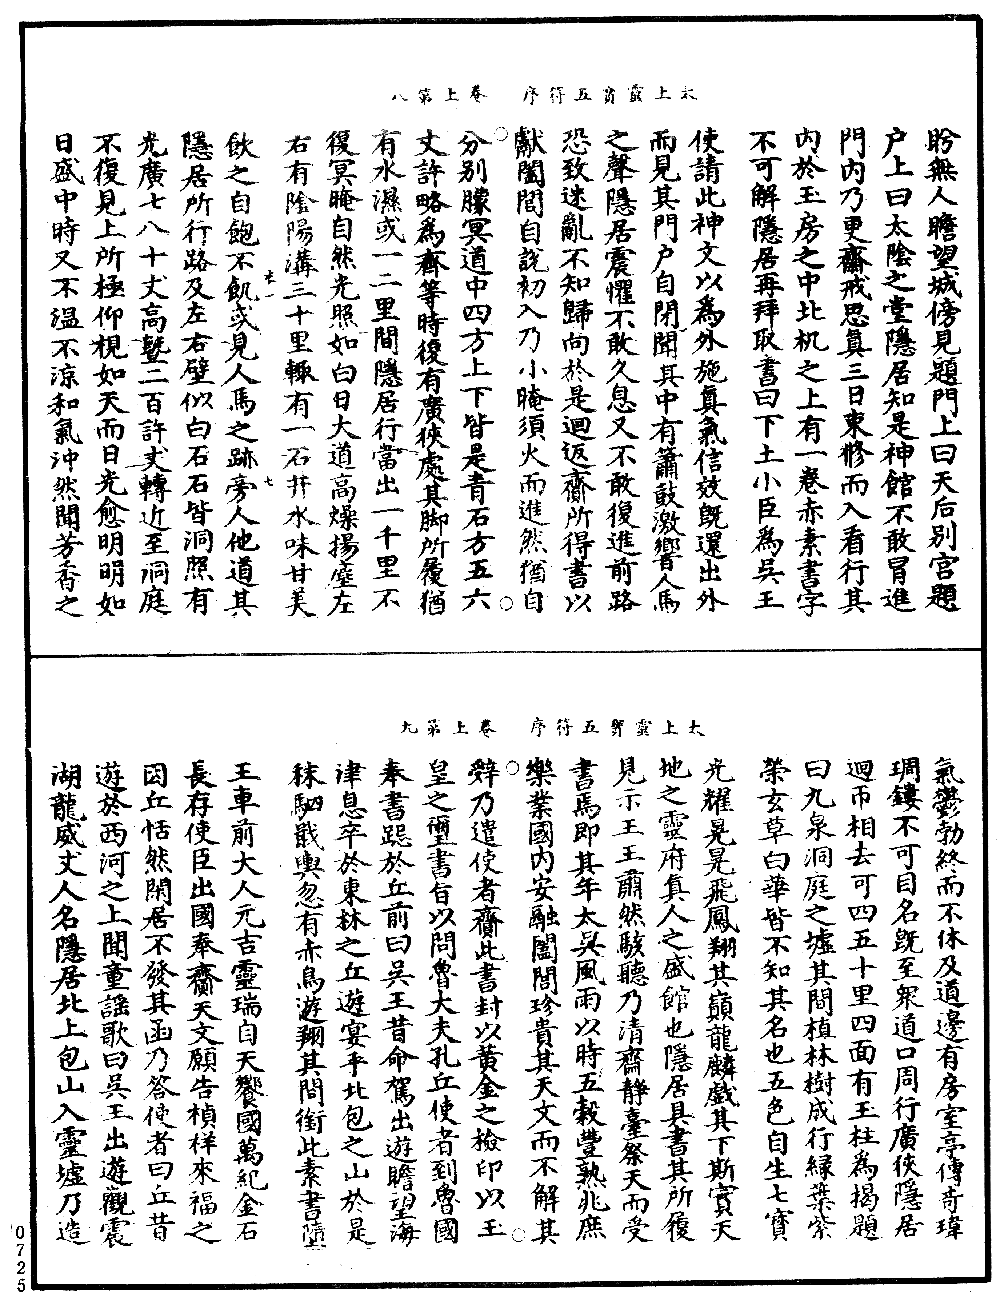 太上靈寶五符序　卷上第八
盻無人瞻望城傍見題門上曰天后别宫題
户上曰太陰之堂隱居知是神館不敢冒進
門内乃更齋戒思真三日束修而入看行其
内於玉房之中北机之上有一卷赤素書字
不可解隱居再拜取書曰下土小臣為吴王
使請此神文以為外施真氣信效既還出外
而見其門户自閉聞其中有簫鼓激響人馬
之聲隱居震懼不敢久息又不敢復進前路
恐致迷亂不知歸向於是迴返齋所得書以
獻闔閭自說初入乃小晻須火而進然猶自
分别朦冥道中四方上下皆是青石方五六
丈許略為齊等時復有廣狹處其脚所履猶
有水濕或一二里間隱居行當出一千里不
復冥晻自然光照如白日大道高燥揚塵左
右有陰陽溝三十里輙有一石井水味甘美
飲之自飽不飢或見人馬之跡旁人他道其
隱居所行路及左右壁似白石石皆洞照有
光廣七八十丈高墼二百許丈轉近至洞庭
不復見上所極仰視如天而日光愈明明如
日盛中時又不温不涼和氣沖然聞芳香之
太上靈寶五符序　卷上第九
氣鬱勃終而不休及道邊有房室亭傳奇瑋
琱鏤不可目名既至衆道口周行廣狹隱居
迴帀相去可四五十里四面有玉柱為揭題
曰九泉洞庭之墟其間植林樹成行緑葉紫
榮玄草白華皆不知其名也五色自生七寶
光耀晃晃飛鳳翔其巔龍麟戲其下斯實天
地之靈府真人之盛館也隱居具書其所履
見示王王肅然駭聽乃清齋靜臺祭天而受
書焉即其年太吴風雨以時五穀豐熟兆庶
樂業國内安融闔閭珍貴其天文而不解其
辤乃遣使者齎此書封以黄金之檢印以玉
皇之璽書旨以問魯大夫孔丘使者到魯國
奉書跽於丘前曰吴王昔命駕出遊瞻望海
津息卒於東林之丘遊宴乎北包之山於是
秣駟戢輿忽有赤鳥遊翔其間銜此素書墮
王車前大人元吉靈瑞自天饗國萬紀金石
長存使臣出國奉齎天文願告禎祥來福之
因丘恬然閑居不發其函乃答使者曰丘昔
遊於西河之上聞童謡歌曰吴王出遊觀震
湖龍威丈人名隱居北上包山入靈墟乃造
0725